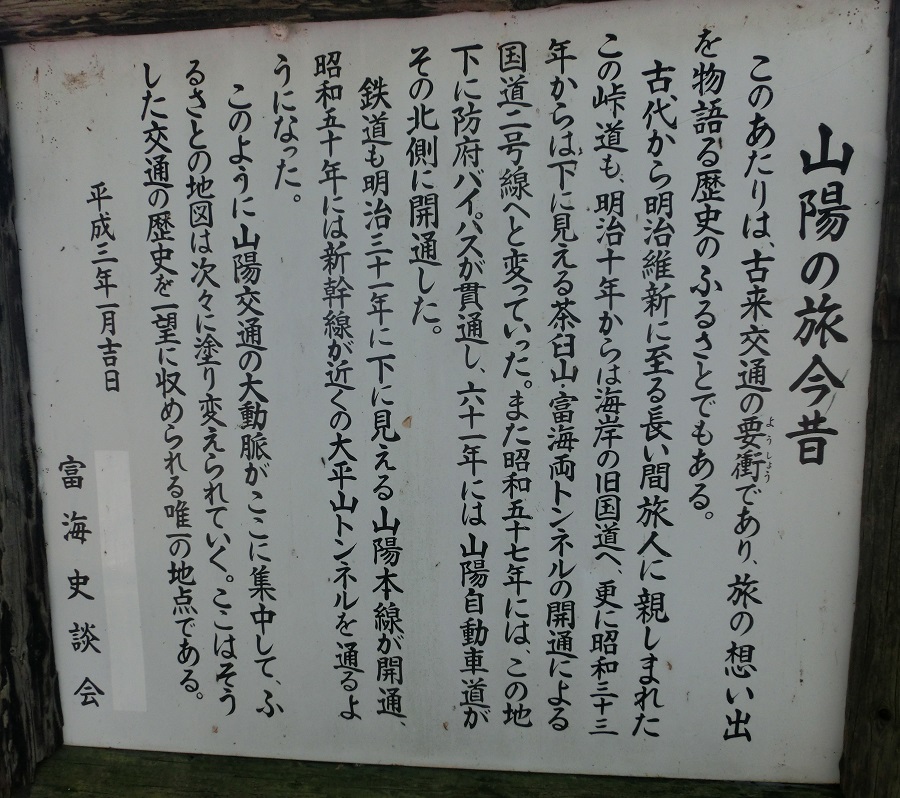 山陽の旅今昔
このあたりは、古来交通の要衝であり、旅の想い出
ようしょう
を物語る歴史のふるさとでもある。
古代から明治維新に至る長い間旅人に親しまれた
この峠道も、明治十年からは海岸の旧国道へ、更に昭和三十三
年からは下に見える茶臼山・富海両トンネルの開通による
国道二号線へと変っていった。また昭和五十七年には、この地
下に防府バイパスが貫通し、六十一年には山陽自動車道が
その北側に開通した。
鉄道も明治三十一年に下に見える山陽本線が開通、
昭和五十年には新幹線が近くの大平山トンネルを通るよ
うになった。
このように山陽交通の大動脈がここに集中して、ふ
るさとの地図は次々に塗り変えられていく。ここはそう
した交通の歴史を一望に収められる唯一の地点である。
平成三年一月吉日
富海史談会